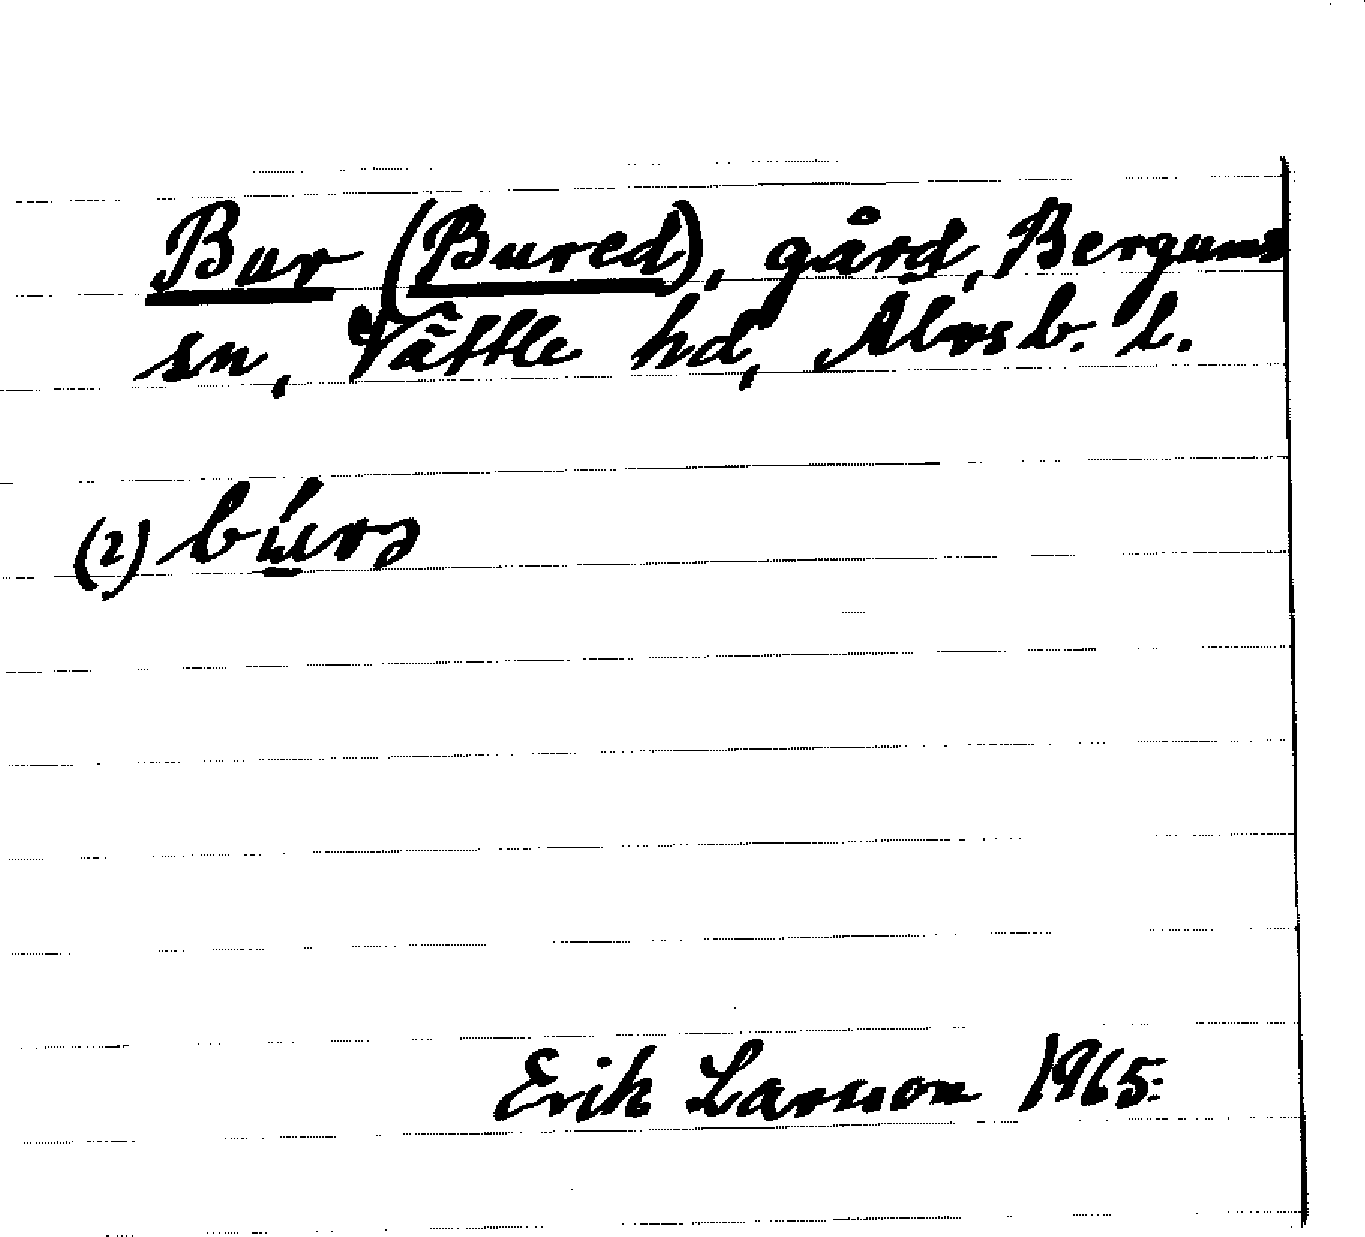 Bur (Bured), gård, Bergums
sn, Vättle hd, Älvsb. l.
(2) búrə
Erik Larsson 1965.